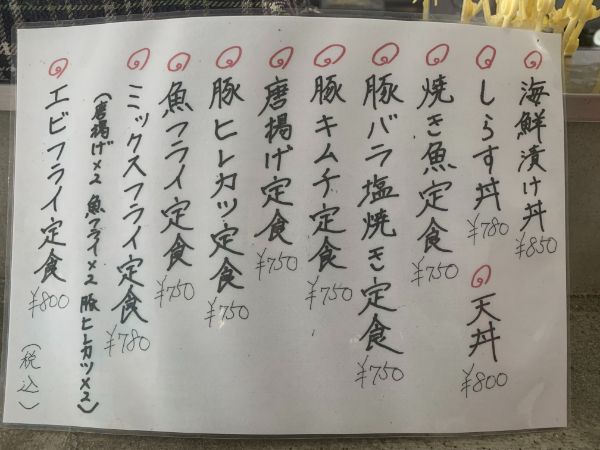 海鮮漬け丼 ¥850
しらす丼 ¥780
天丼 ¥800
焼き魚定食 ¥750
豚バラ塩焼き定食 ¥750
豚キムチ定食 ¥750
唐揚げ定食 ¥750
豚ヒレカツ定食 ¥750
魚フライ定食 ¥750
ミックスフライ定食 ¥780
(唐揚げ×2 魚フライ×2 豚ヒレカツ×2)
エビフライ定食 ¥800
(税込)